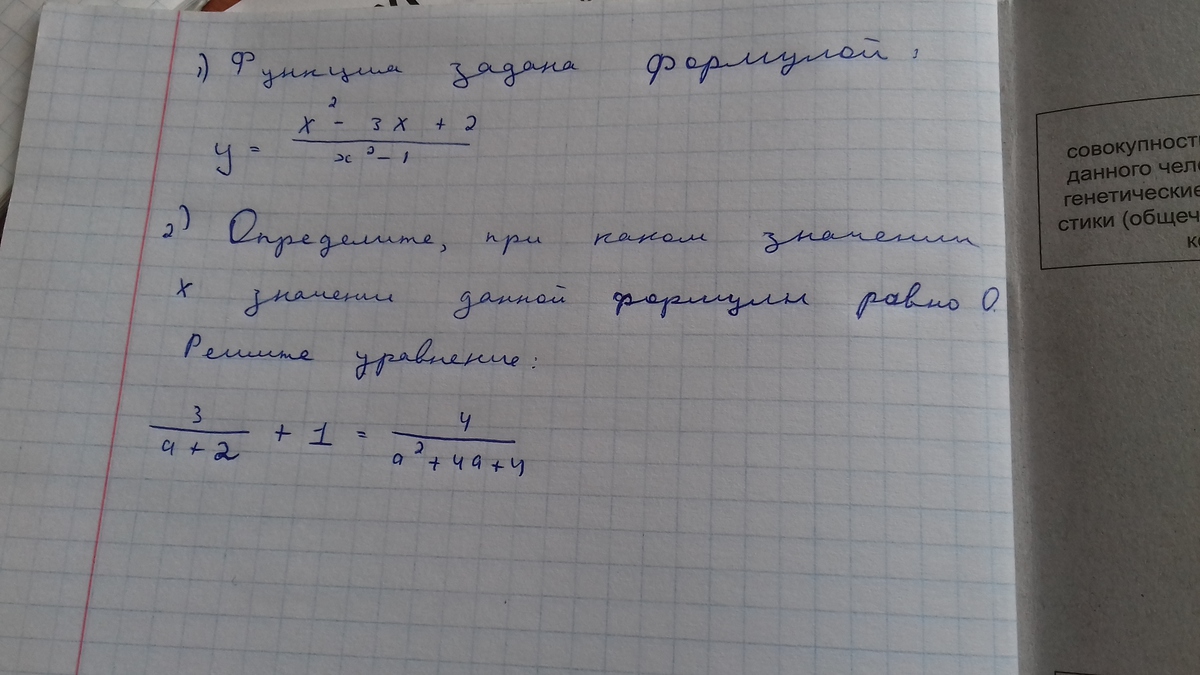 1) Функция задана формулой:
y = (x² - 3x + 2) / (x² - 1)
2) Определите, при каком значении
x значении данной формулы равно 0.
Решите уравнение:
3 / (a + 2) + 1 = 4 / (a² + 4a + 4)
совокупность
данного чело
генетические
стики (общеч